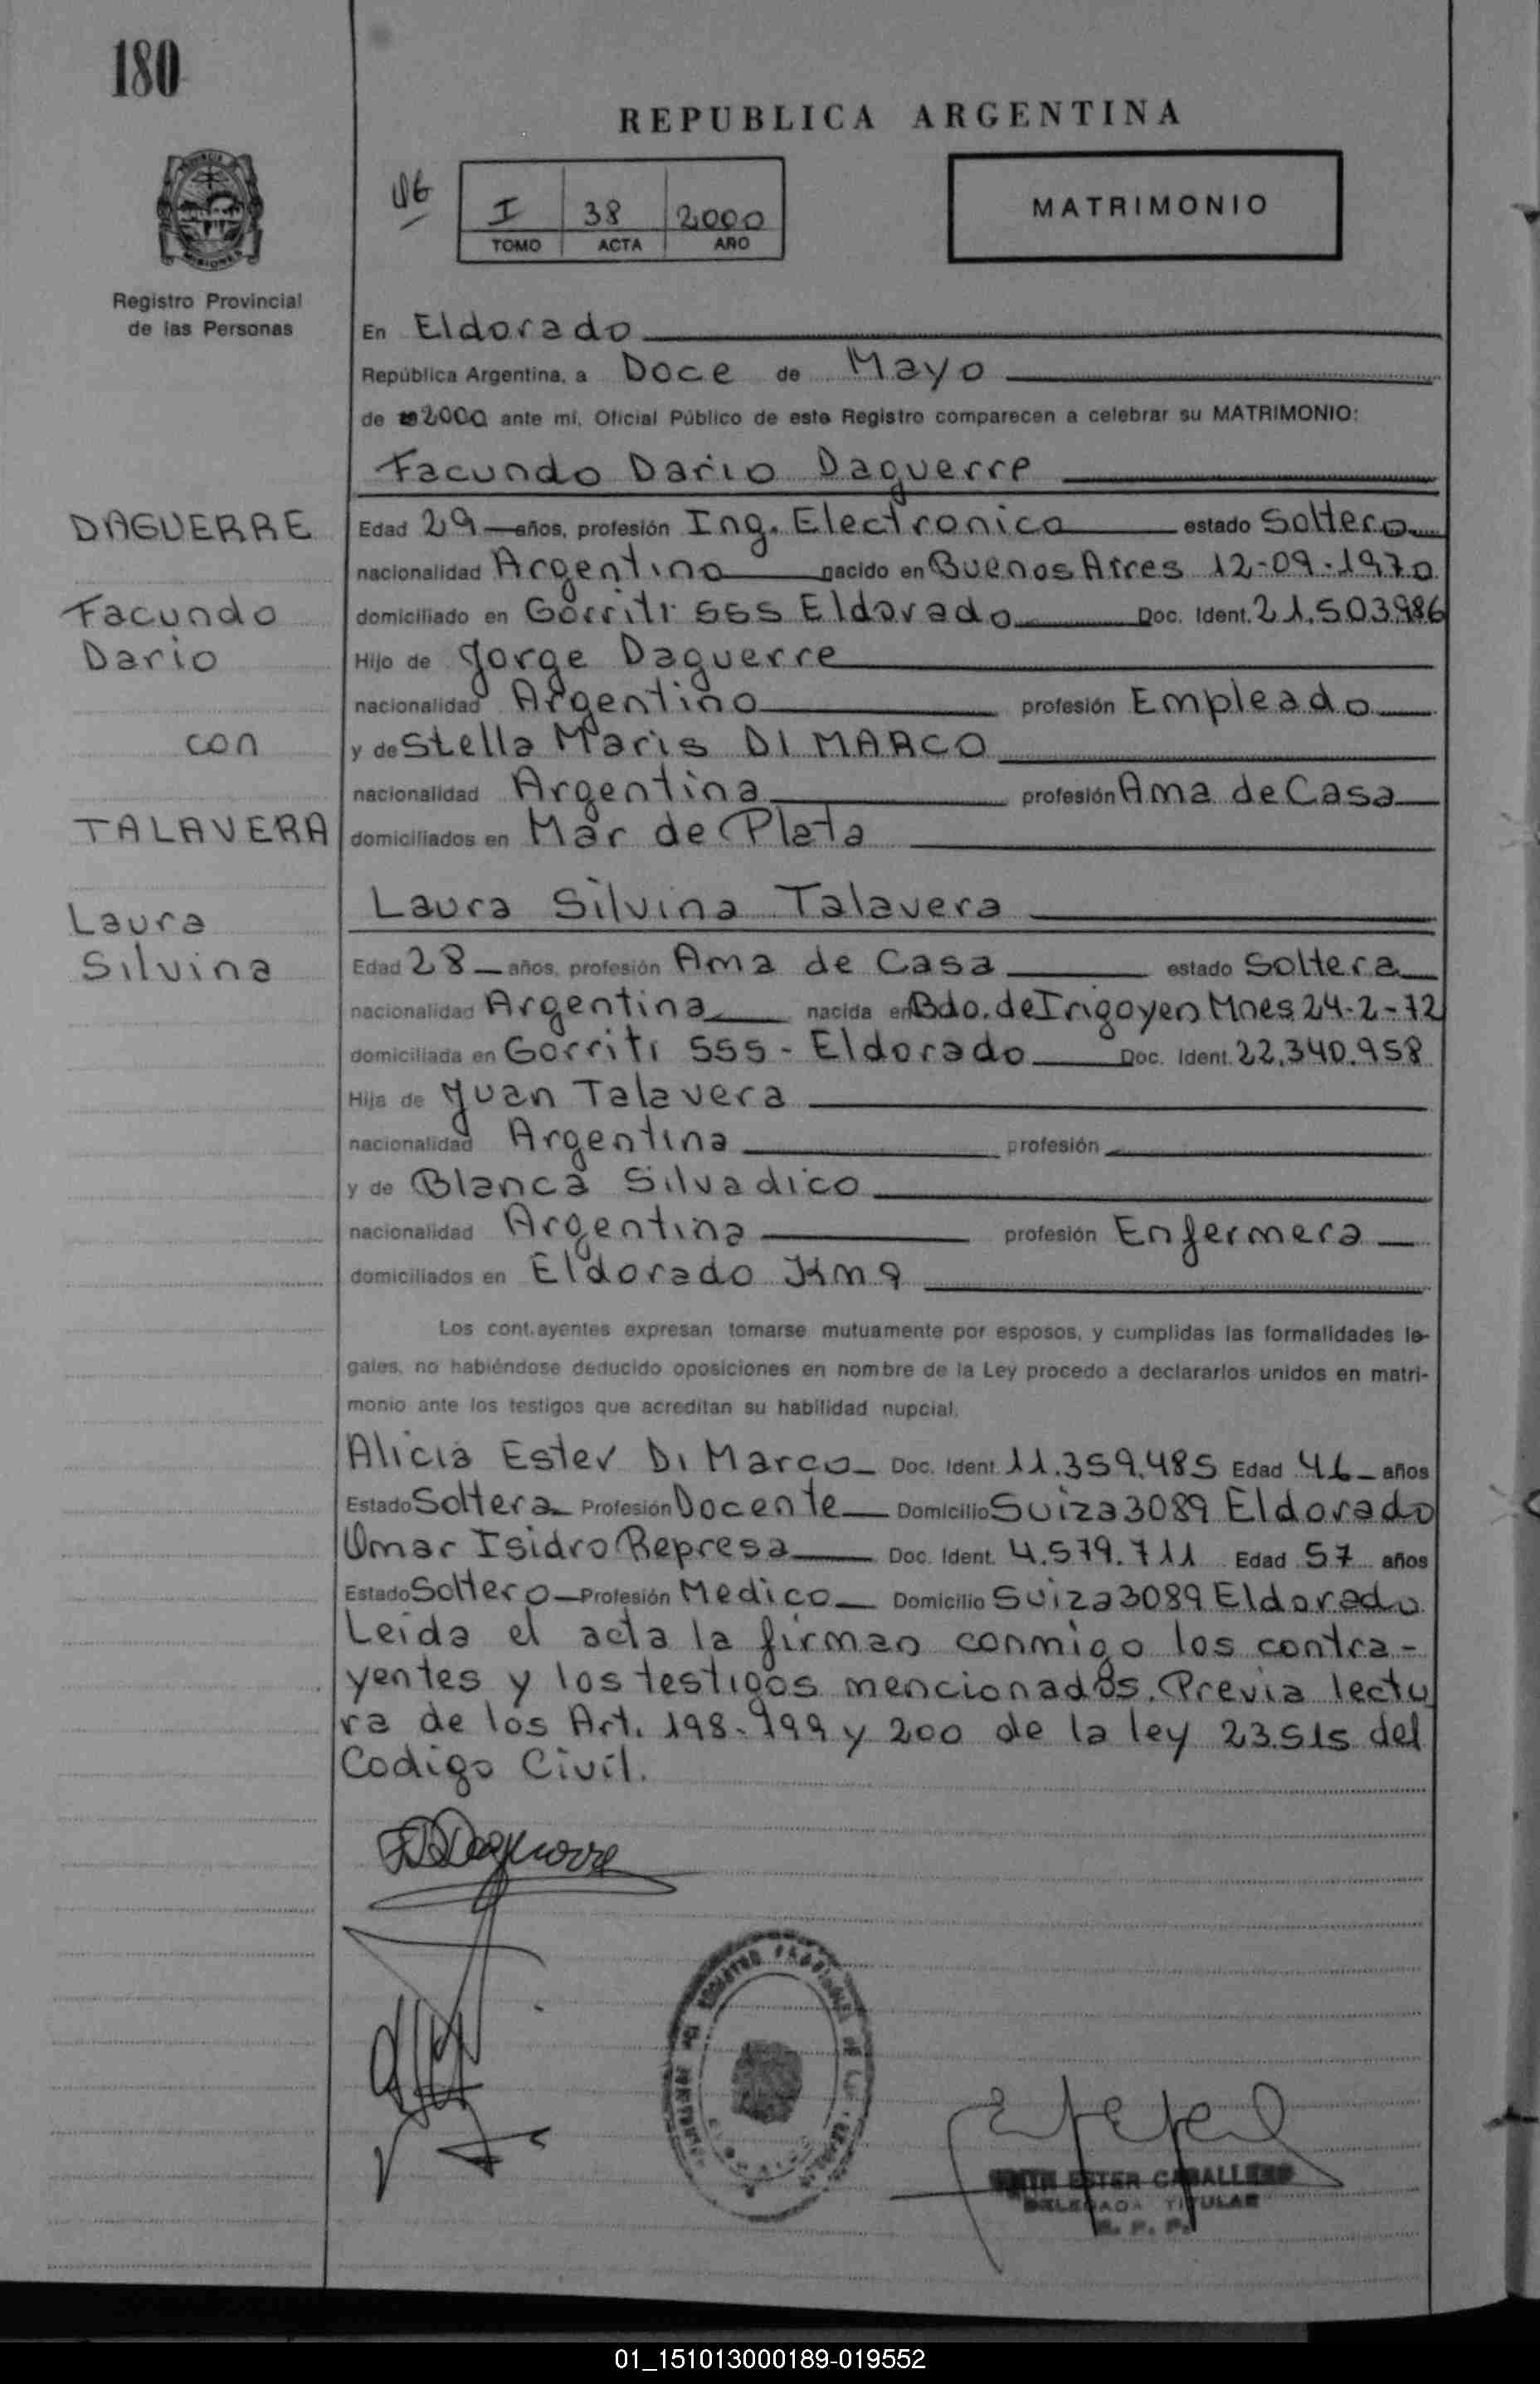 180
REPUBLICA ARGENTINA
I 38 2000
TOMO ACTA AÑO
MATRIMONIO
MISIONES
Registro Provincial
de las Personas
En Eldorado
República Argentina, a Doce de Mayo
de 2000 ante mi, Oficial Público de este Registro comparecen a celebrar su MATRIMONIO:
Facundo Dario Daguerre
DAGUERRE
Facundo
Dario
con
TALAVERA
Laura
Silvina
Edad 29 años, profesión Ing. Electronico estado Soltero
nacionalidad Argentino nacido en Buenos Aires 12-09-1970
domiciliado en Gorriti 555 Eldorado Doc. Ident. 21.503.986
Hijo de Jorge Daguerre
nacionalidad Argentino profesión Empleado
y de Stella Maris DI MARCO
nacionalidad Argentina profesión Ama de Casa
domiciliados en Mar de Plata
Laura Silvina Talavera
Edad 28 años, profesión Ama de Casa estado Soltera
nacionalidad Argentina nacida en Bdo. de Irigoyen Mnes 24-2-72
domiciliada en Gorriti 555 - Eldorado Doc. Ident. 22.340.958
Hija de Juan Talavera
nacionalidad Argentina profesión
y de Blanca Silvadico
nacionalidad Argentina profesión Enfermera
domiciliados en Eldorado Km 9
Los contrayentes expresan tomarse mutuamente por esposos, y cumplidas las formalidades le-
gales, no habiéndose deducido oposiciones en nombre de la Ley procedo a declararlos unidos en matri-
monio ante los testigos que acreditan su habilidad nupcial.
Alicia Ester Di Marco Doc. Ident. 11.359.485 Edad 46 años
Estado Soltera Profesión Docente Domicilio Suiza 3089 Eldorado
Omar Isidro Represa Doc. Ident. 4.579.711 Edad 57 años
Estado Soltero Profesión Medico Domicilio Suiza 3089 Eldorado
Leida el acta la firman conmigo los contra-
yentes y los testigos mencionados. Previa lectu
ra de los Art. 198-199 y 200 de la ley 23.515 del
Codigo Civil.
ESTER CABALLERO
DELEGADA TITULAR
R. P. P.
01_151013000189-019552